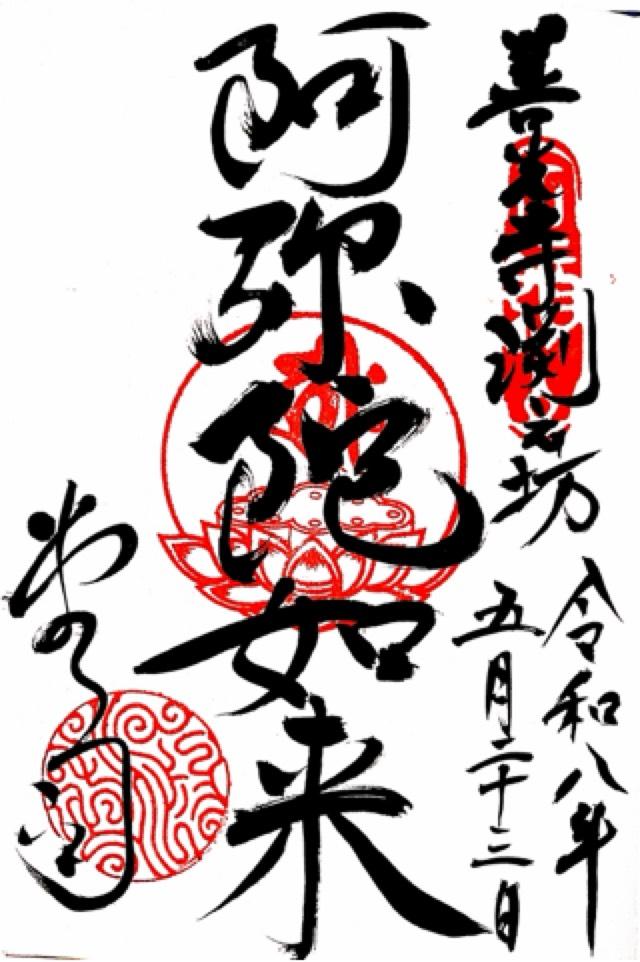 善光寺淵之坊
令和八年
五月二十三日
阿弥陀如来